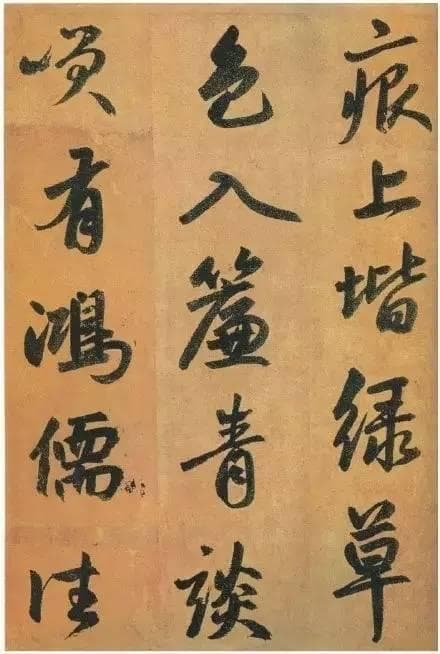 痕上堦绿草
色入簾青談
咲有鴻儒往